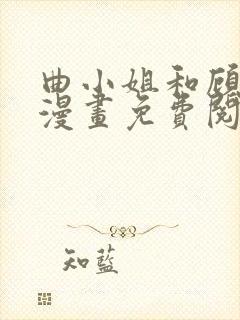 曲小姐和顾
漫畫免費閱
知藍